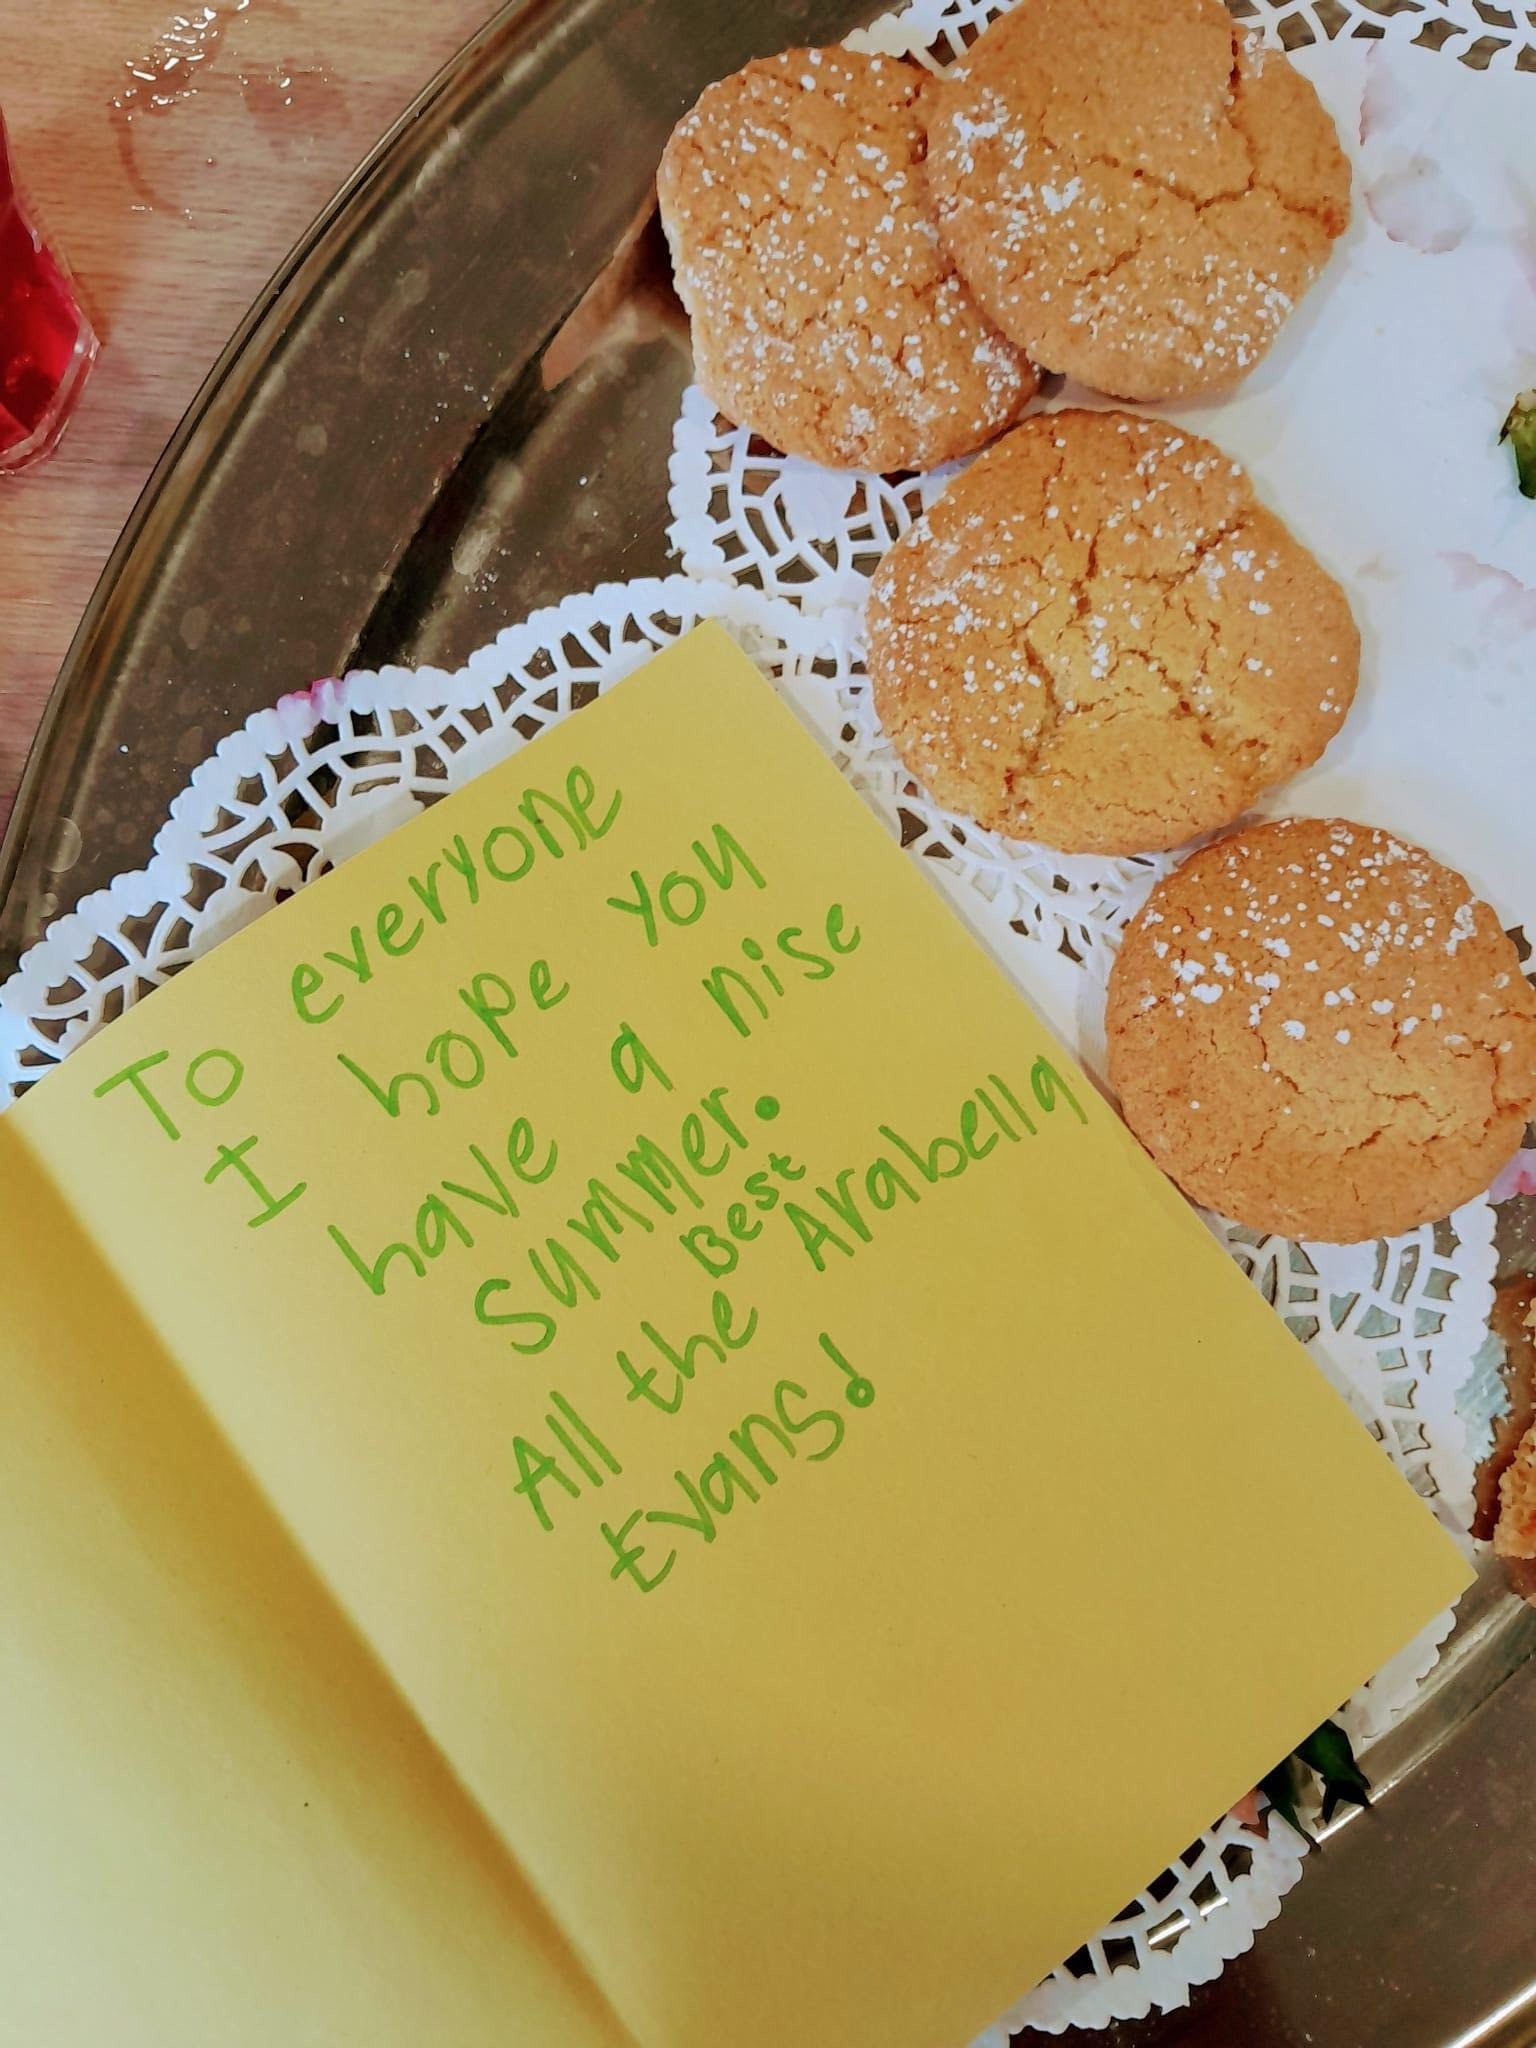 To everyone
I hope you
have a nise
summer.
All the Best Arabella
Evans!